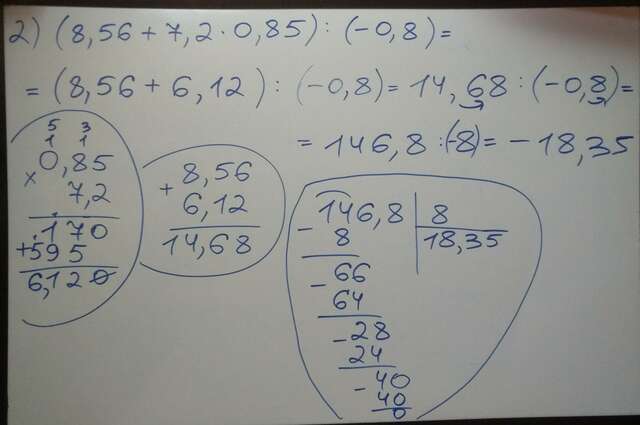 2) (8,56 + 7,2 · 0,85) : (-0,8) =
= (8,56 + 6,12) : (-0,8) = 14,68 : (-0,8) =
= 146,8 : (-8) = -18,35
5 3
1 1
× 0,85
7,2
170
+ 595
6,120
+ 8,56
6,12
14,68
- 146,8 | 8
8 18,35
- 66
64
- 28
24
- 40
40
0